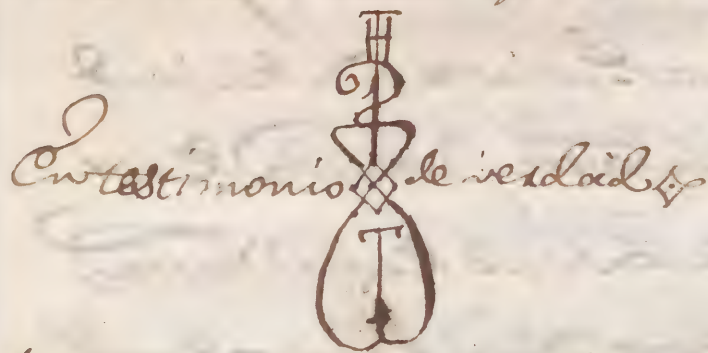 En testimonio de verdad